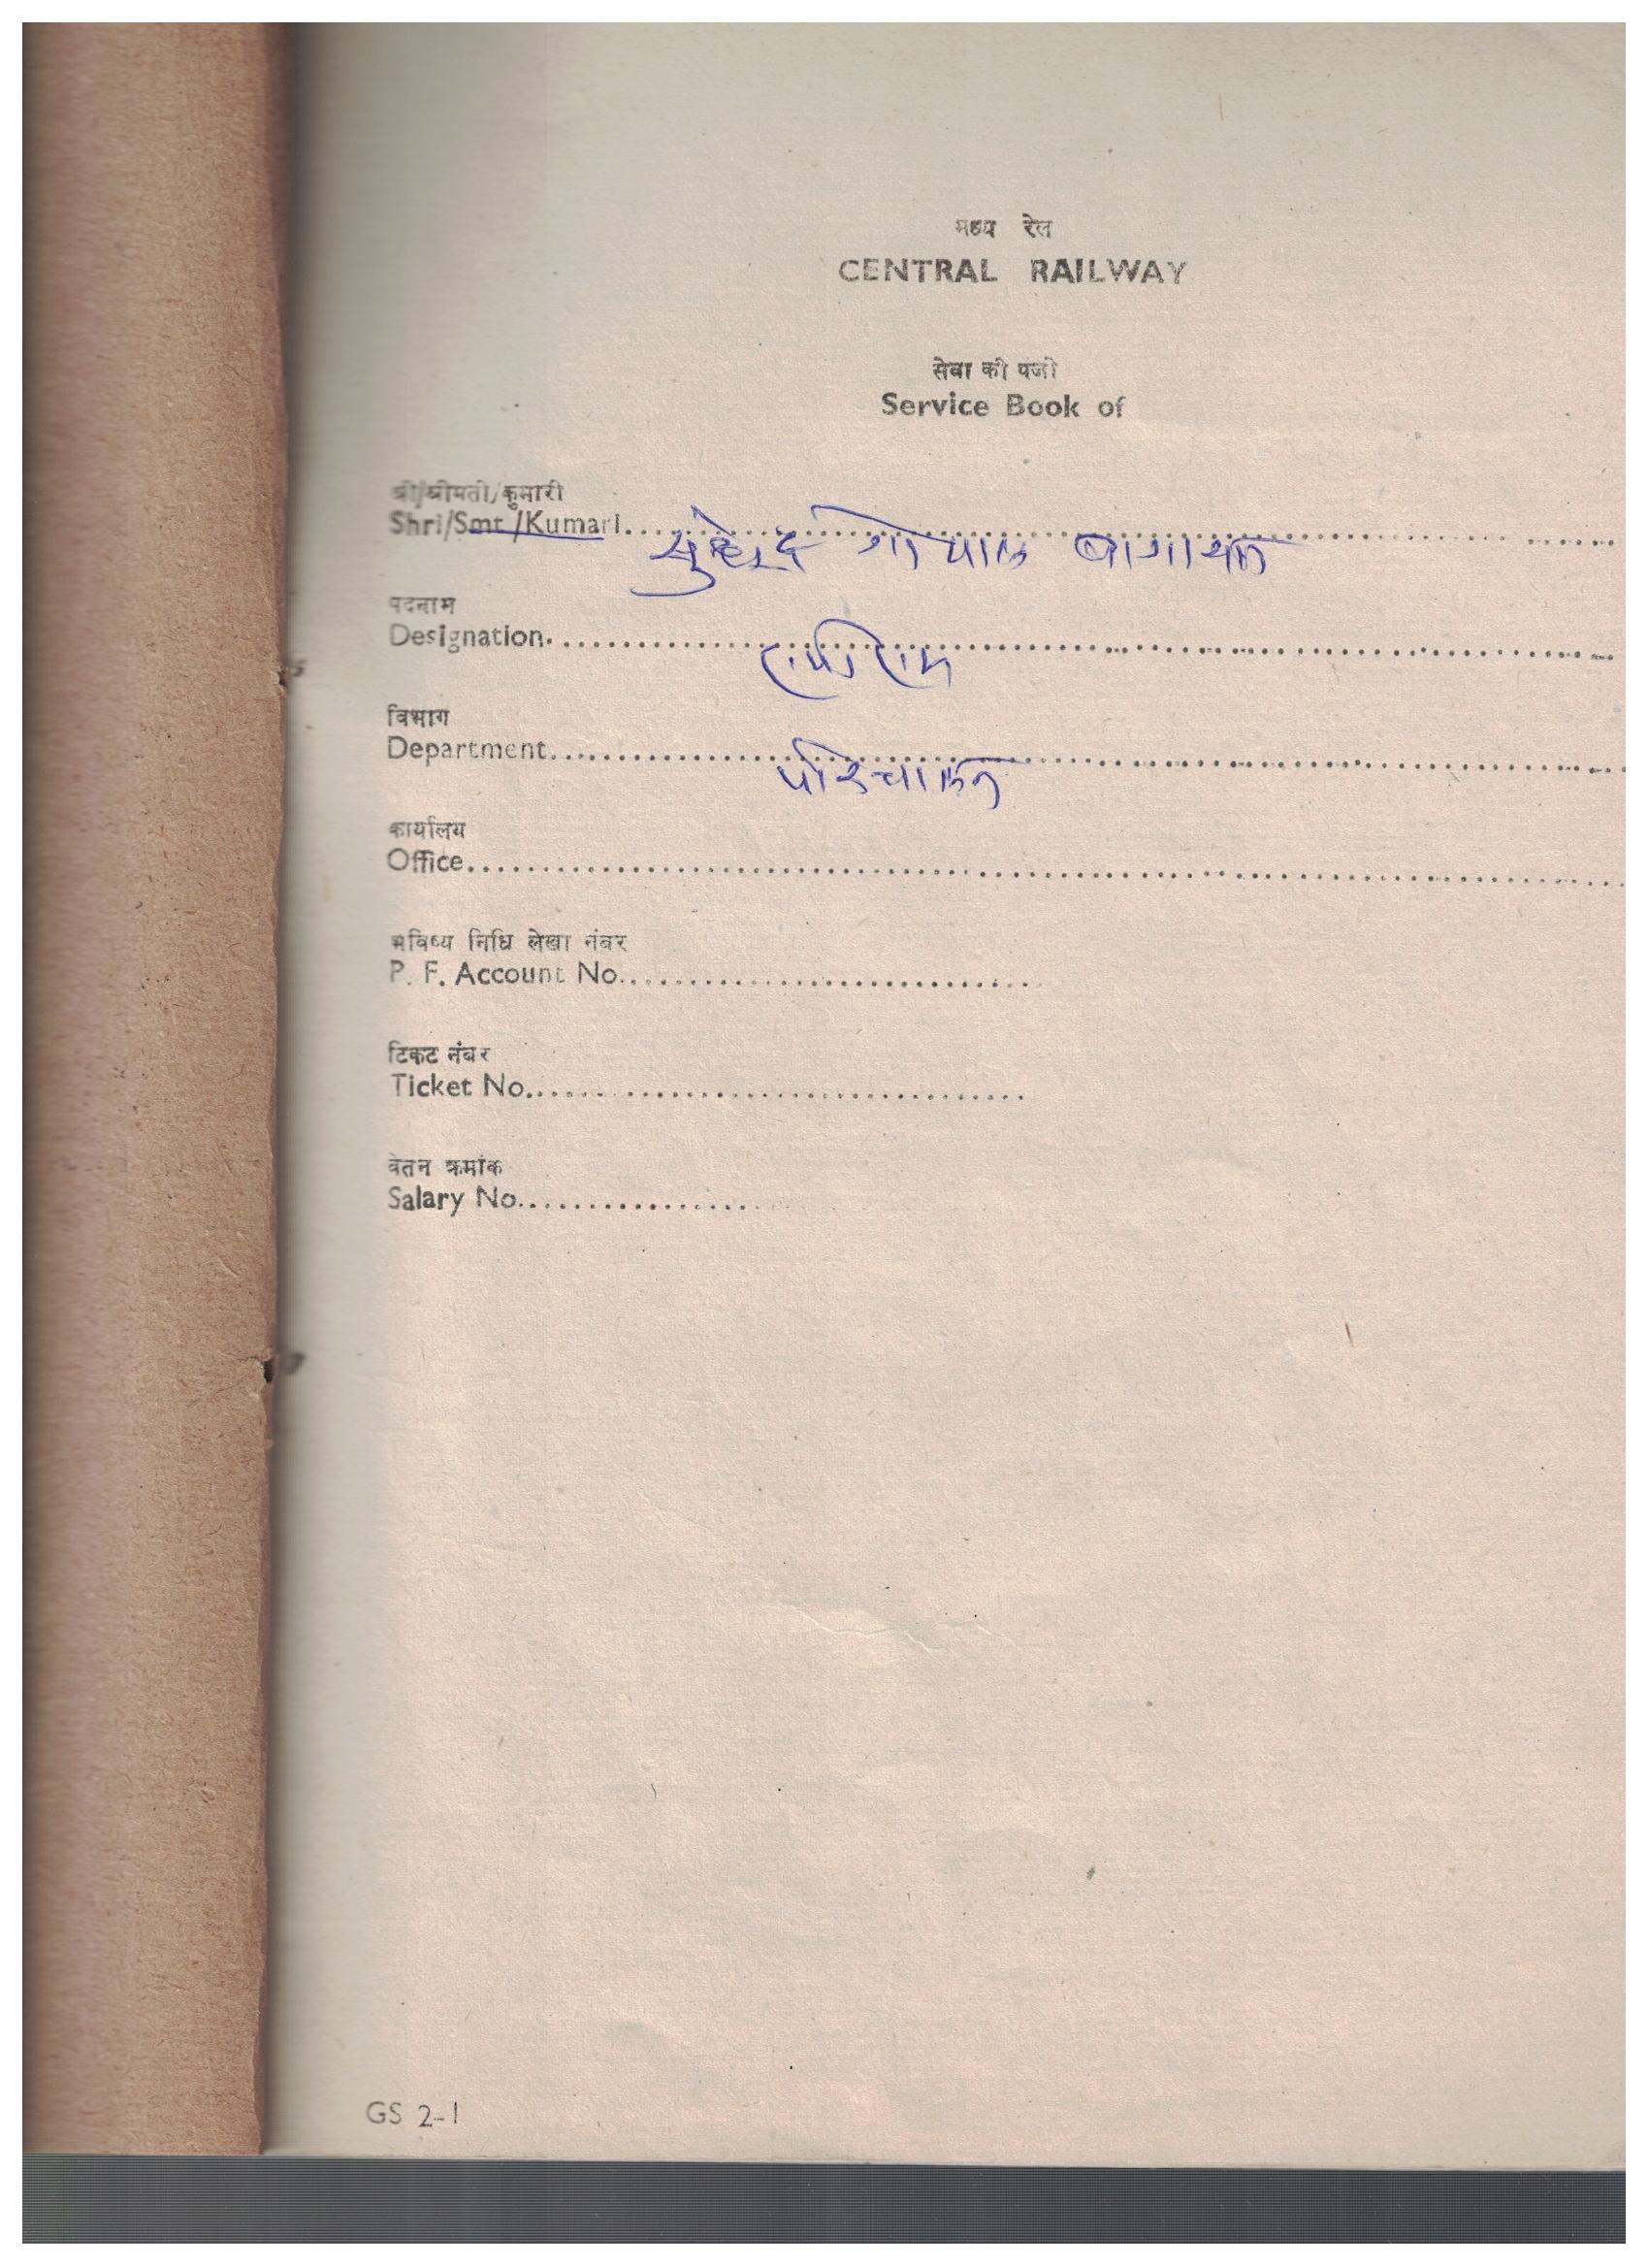 मध्य रेल
CENTRAL RAILWAY
सेवा की पंजी
Service Book of
श्री/श्रीमती/कुमारी
Shri/Smt /Kumari.......... गोपाल
पदनाम
Designation..........
विभाग
Department.......... परिचालन
कार्यालय
Office..........
भविष्य निधि लेखा नंबर
P. F. Account No..........
टिकट नंबर
Ticket No..........
वेतन क्रमांक
Salary No..........
GS 2-1